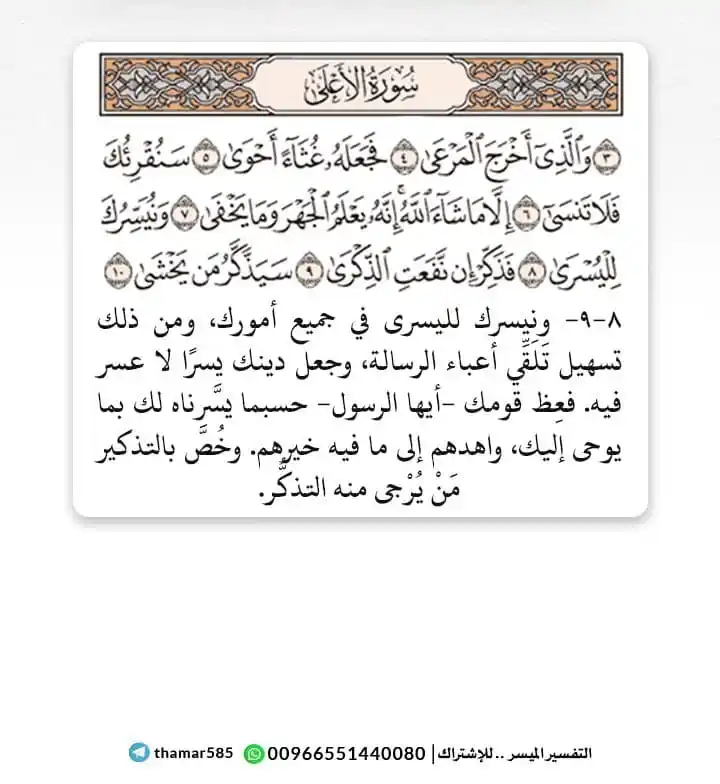 سُورَةُ الأَعْلَى
٣ وَٱلَّذِىٓ أَخْرَجَ ٱلْمَرْعَىٰ ٤ فَجَعَلَهُۥ غُثَآءً أَحْوَىٰ ٥ سَنُقْرِئُكَ
فَلَا تَنسَىٰٓ ٦ إِلَّا مَا شَآءَ ٱللَّهُ ۚ إِنَّهُۥ يَعْلَمُ ٱلْجَهْرَ وَمَا يَخْفَىٰ ٧ وَنُيَسِّرُكَ
لِلْيُسْرَىٰ ٨ فَذَكِّرْ إِن نَّفَعَتِ ٱلذِّكْرَىٰ ٩ سَيَذَّكَّرُ مَن يَخْشَىٰ ١٠
٨-٩- ونيسرك لليسرى في جميع أمورك، ومن ذلك
تسهيل تَلَقِّي أعباء الرسالة، وجعل دينك يسرًا لا عسر
فيه. فعِظ قومك -أيها الرسول- حسبما يسَّرناه لك بما
يوحى إليك، واهدهم إلى ما فيه خيرهم. وخُصَّ بالتذكير
مَنْ يُرْجى منه التذكُّر.
التفسير الميسر .. للإشتراك | 00966551440080 thamar585